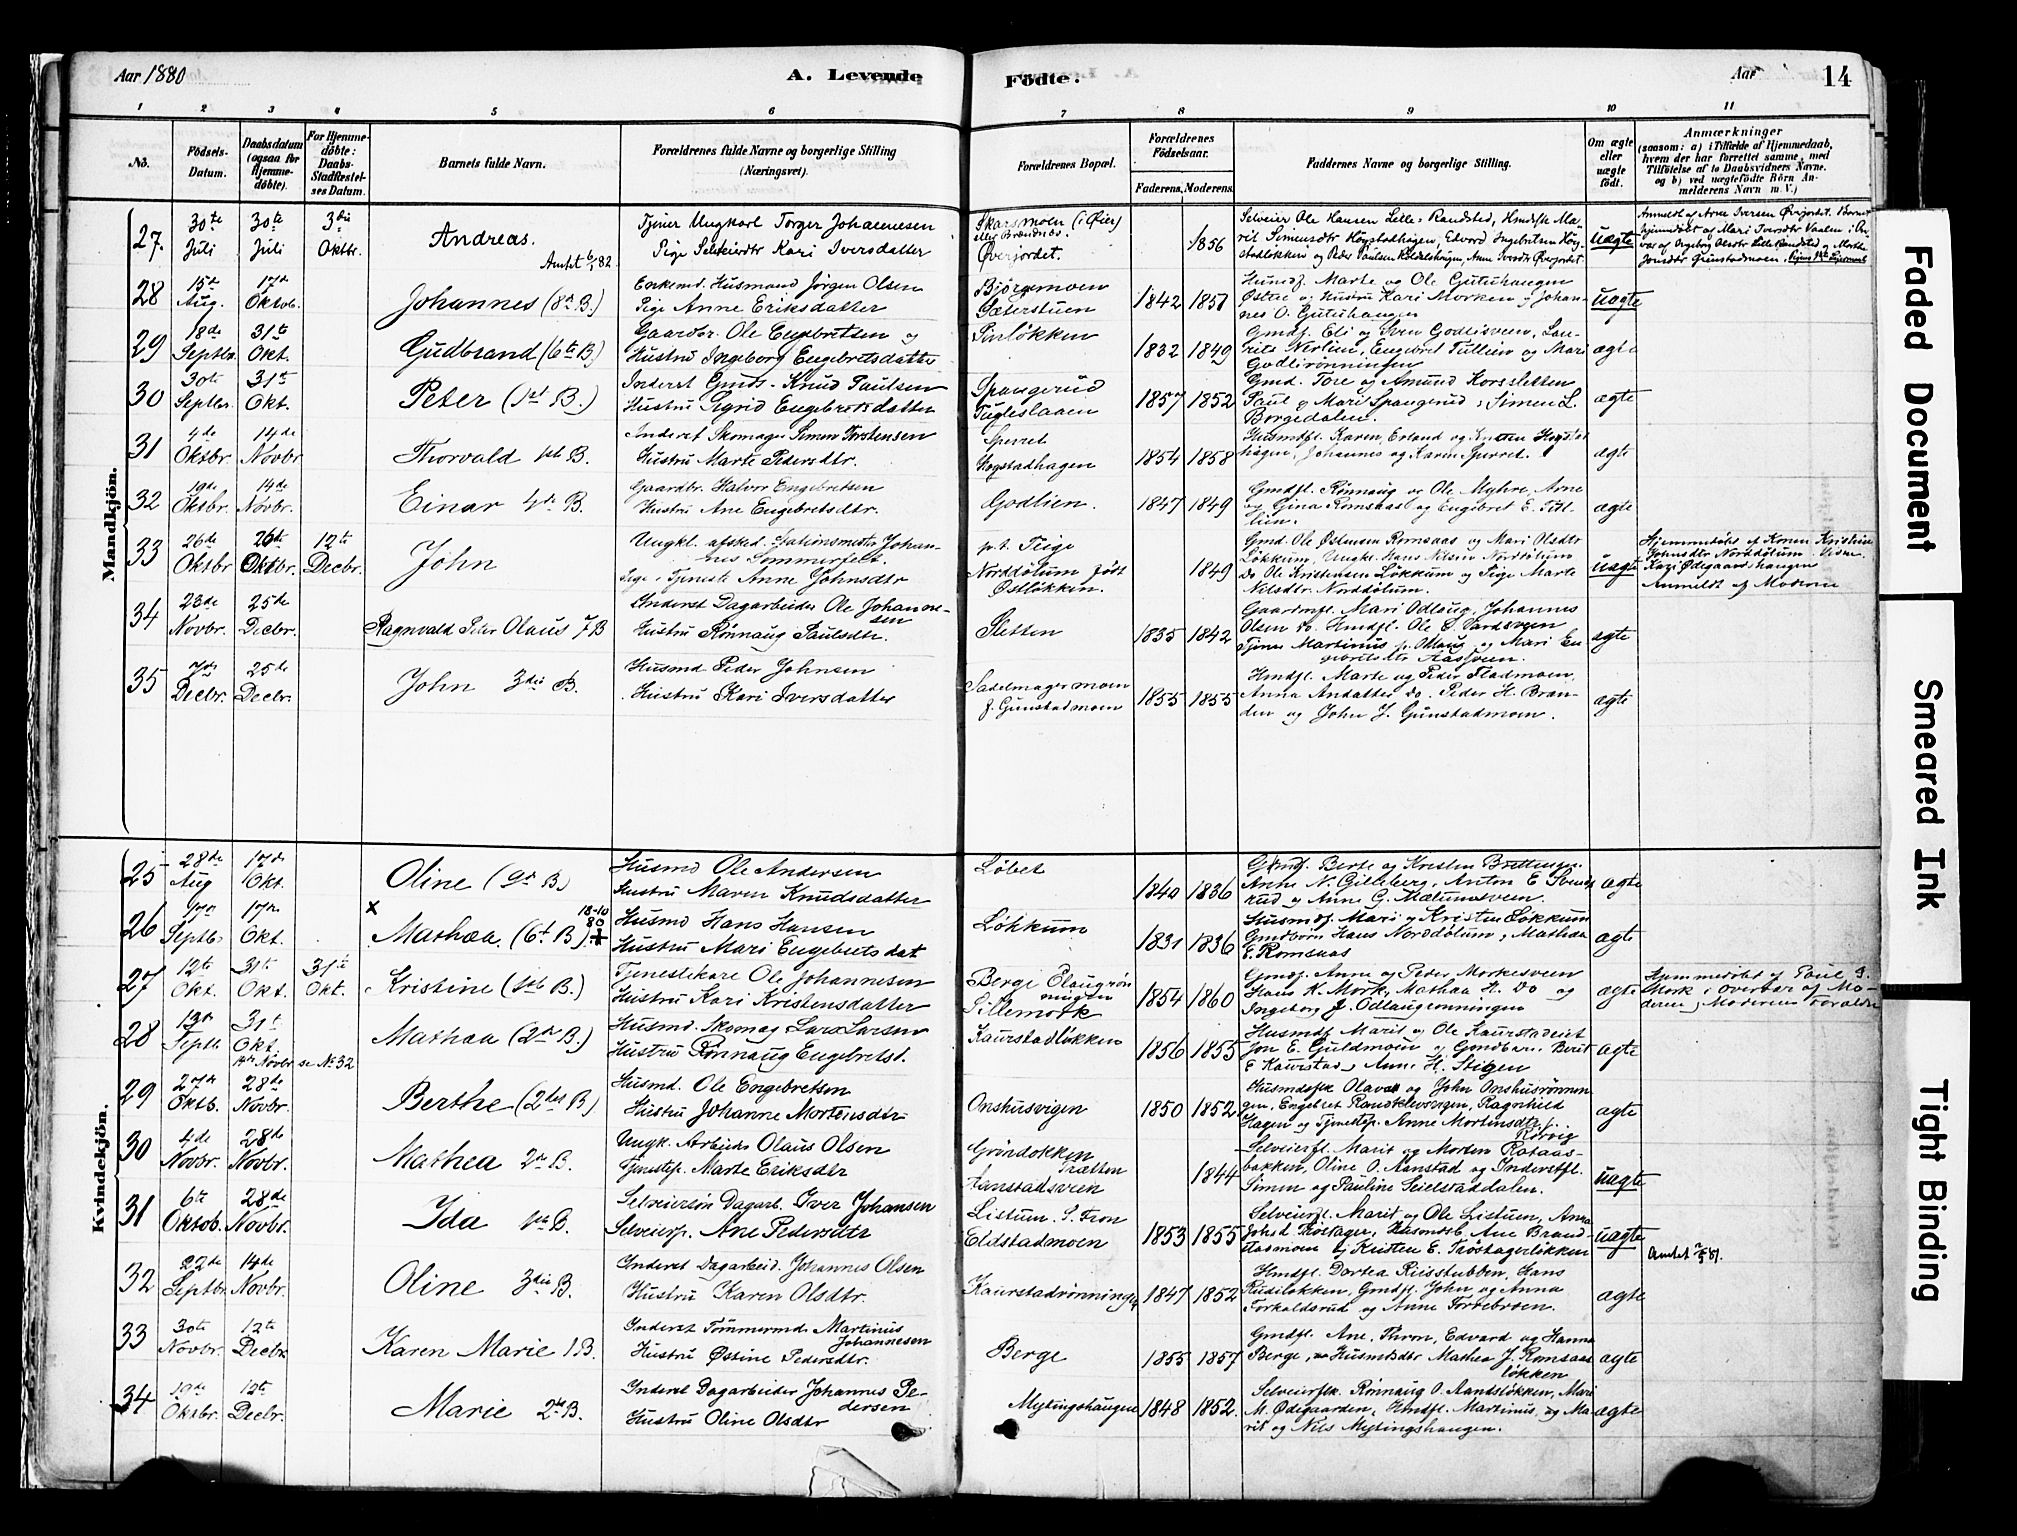 Aar 1880
A. Levende
Födte.
Aar
14
1 2 3 4 5 6 7 8 9 10 11
No.
Födsels-Datum.
Daabsdatum (ogsaa for Hjemme-döbte).
For Hjemme-döbte: Daabs-Stadfæstel-ses Datum.
Barnets fulde Navn.
Forældrenes fulde Navne og borgerlige Stilling (Næringsvei).
Forældrenes Bopæl.
Forældrenes Födselsaar.
Faderens. Moderens.
Faddernes Navne og borgerlige Stilling.
Om ægte eller uægte födt.
Anmærkninger
(saasom: a) i Tilfælde af Hjemmedaab, hvem der har forrettet samme, med Tilföielse af to Daabsvidners Navne, og b) ved uægtefödte Börn An-melderens Navn m. V.)
Mandkjön.
27. 30te Juli 30te Juli 3die Oktbr. Andreas. Tjener Ungkarl Torger Johannesen
Pige Selveierdtr Kari Iversdatter
Skarsmoen (i Øier)
Øverjordet. 1856
Selveier Ole Hansen Lille-Randstad, uægte
28 15de Aug. 17de Oktob. Johannes (8de B.) Enkemd. Husmand Jørgen Olsen
Pige Anne Eriksdatter
Bjørgemoen
Sæterstuen 1842 1851
Husmf. Marte og Ole Gutuhaugen
Østre og Hustru Kari Morken og Johan-
nes O. Gutuhaugen uægte
29 18de Septbr. 31te Okt. Gudbrand (6te B.) Gaardbr. Ole Engebretsen og
Hustru Ingeborg Engebretsdatter
1832 1849
Gmdf. Eli og Sven Godlisveen,
Engebret Tullien og Mari
Godlirønningen ægte
30 30te Septbr. 31te Okt. Peter (1ste B.) Inderst Gmds. Knud Paulsen
Hustru Sigrid Engebretsdatter
Spangerud
1857 1852
Gmd. Tore og Amund Korssletten
Paul og Mari Spangerud, Simen L.
Borgedalen. ægte
31 4de Oktbr. 14de Novbr Thorvald 1ste B. Inderst Skomager Simen Torstensen
Hustru Marte Pedersdtr.
Sperret
Hogstadhagen 1854 1858
Husmdfl. Karen, Erland og
hagen, Johannes og Karen Sperret. ægte
32 19de Oktbr. 14de Novbr. Einar 4de B. Gaardbr. Halvor Engebretsen
Hustru Ane Engebretsdtr.
Godlien. 1847 1849
Gmdfl. Rønnaug og Ole Myhre, Arne
og Gina Romsaas og Engebret E. ægte
33 26de Oktbr 26de Oktbr. 12te Decbr. John Ungkl. afsked. Stationsmester Johan-
nes Sommerfelt.
Pige i Tjeneste Anne Johnsdtr
p.t. Teige
Norddølum født
Østløkken. 1849
Gmd. Ole Østensen Romsaas og Mari Olsdtr
Løkkum, Ungk. Hans Nilsen Norddølum
Do Ole Kristensen Løkkum og Pige Marte
Nilsdtr. Norddølum. uægte
Hjemmedøbt af Konen Kristine
Johnsdtr Norddølum.
Kari Ødegaardshaugen
Anmeldt af Moderen
34 23de Novbr. 25de Decbr. Ragnvald Peter Olaus 7 B Inderst Dagarbeider Ole Johanne-
sen
Hustru Rønnaug Paulsdtr.
Sletten 1835 1842
Gaardmfl. Mari Odlaug, Johannes
Olsen do. Hmdfl. Ole E. Vardsveen
Tjener Martinus p. Odlaug og Mari En
gebretsdtr Aasveen. ægte
35 7de Decbr. 25de Decbr. John 3die B. Husmd Peder Johnsen
Hustru Kari Iversdatter
Sadelmagermoen
f. Gunstadmoen 1855 1855
Hmdfl. Marte og Peder Fladmoen,
Anna do. Peder H. Bran-
den og John J. Gunstadmoen. ægte
Kvindekjön.
25 28de Aug 17de Okt. Oline (9de B.) Husmd Ole Andersen
Hustru Maren Knudsdatter
Løbet 1840 1836
Anne N. Gilleberg, Anton E
rud og Anne G. ægte
26 17de Septb. 17de Okt. x Mathea. (6te B.) + 18-10 80 Husmd Hans Hansen
Hustru Mari Engebretsdat
Løkkum 1831 1836
Husmdf. Mari og Kristen Løkkum
Gmdbørn Hans Norddølum, Mathea
E. Romsaas ægte
27 12te Okt. 31te Okt. 31te Okt. Kristine (1ste B.) Tjenestekare Ole Johannesen
Hustru Kari Kristensdatter
Berge
Lillemork 1854 1860
Gmdf. Anne og Peder Morkesveen
Hans K. Mork, Mathea H. Do og
Ingeborg J. Odlaugrønningen ægte
Hjemmedøbt af Paul
Mork i Overvær af Mo-
deren og Moderens Forældre
28 13de Septb. 31te Okt. 14de Novbr se No 32 Mathea (2den B.) Husmd. Skomag Lars Larsen
Hustru Rønnaug Engebretsd.
Kaurstadløkken 1856 1855
Husmdf Marit og Ole Kaurstadeiet
Jon E. Guldmoen og Gmdbarn Berit
E Kaurstad, Anne H. Stigen ægte
29 27de Oktb. 28de Novbr. Berthe (2det B) Husmd. Ole Engebretsen
Hustru Johanne Mortensdtr
Onshusvigen 1850 1852
Husmdsflk Olava og John Onshusrønnin
gen, Engebret Randklevsvigen, Ragnhild
Hagen og Tjenestep. Anne Mortinsdtr
Rørvig ægte
30 4de Novbr. 28de Novbr. Mathea 2den B. Ungk. Arbeider Olaus Olsen
Tjenestep. Marte Eriksdtr
Grøndokken
Trætten
Aanstadsveen 1844
Selveierfl. Marit og Morten Rotaas-
bakken, Oline O. Aanstad og Inderstfl.
Simen og Pauline Seielstaddalen. uægte
31 6te Oktob. 28de Novbr. Ida 1ste B. Selveiersøn Dagarb. Iver Johansen
Selveierp. Ane Pedersdtr
Listum. S. Fron
Eldstadmoen 1853 1855
Selveierfl. Marit og Ole Listum, Anna
Johsd Trøstager, Husmdsb. Ane Brand-
stadmoen og Kristen E. Trøstagerløkken uægte
32 22de Septbr 14de Novbr. Oline 3die B. Inderst Dagarbeid. Johannes Olsen
Hustru Karen Olsdtr.
Kaurstadrønningen 1847 1852
Hmdfl. Dortea Riisstubben, Hans
Rudiløkken, Gmdfl. John og Anna
Torkaldsrud og Anne ægte
33 30te Novbr. 12te Decbr. Karen Marie 1 B. Inderst Tømmermd. Martinus
Johannesen
Hustru Østine Pedersdtr.
Berge 1855 1857
Gmdfl. Ane, Thron, Edvard og Hanna
Berge, Husmdsdtr Mathea J. Romsaas
løkken ægte
34 19de Oktbr. 12te Decbr. Marie 2det B. Inderst Dagarbeider Johannes Pe-
dersen
Hustru Oline Olsdtr
Mytingshaugen 1848 1852.
Selveierflk. Rønnaug O. Aandsløkken, Mari
M. Ødegaarden, Hmdfl. Martinus og Ma-
rit og Nils Mytingshaugen. ægte
Faded Document
Smeared Ink
Tight Binding